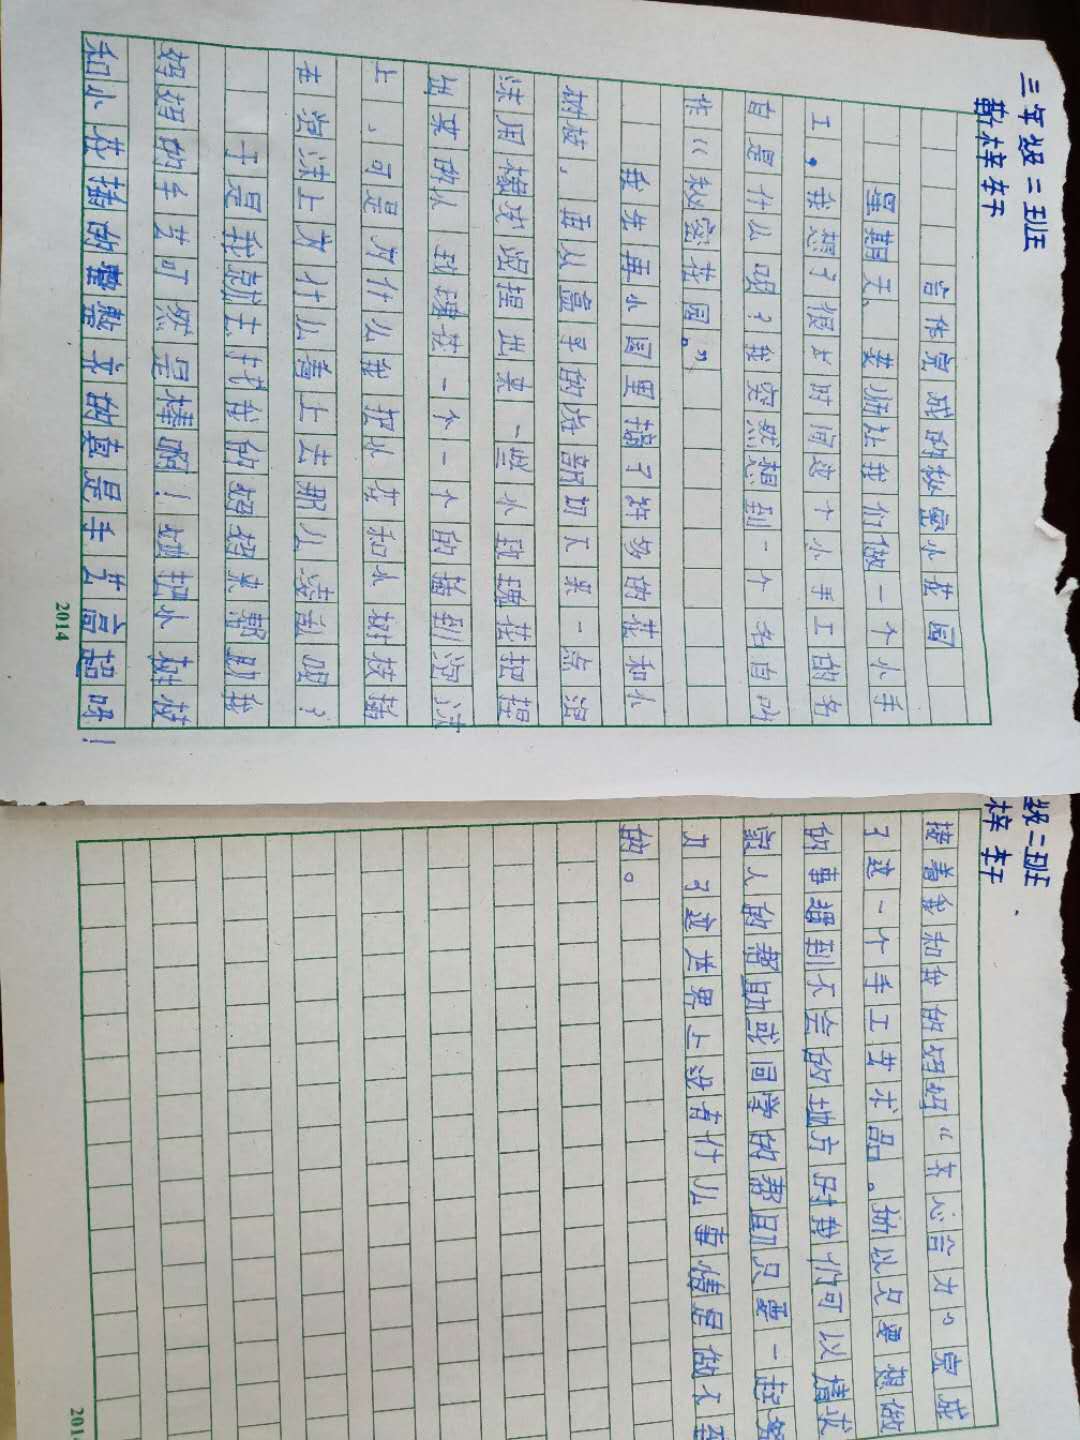 三年级二班
靳梓轩
合作完成的秘密小花园
星期天，老师让我们做一个小手
工。我想了很长时间这个小手工的名
自是什么呢？我突然想到一个名自叫
作《秘密花园。”
我先再小园里摘了许多的花和小
树枝，再从盒子的底部切下来一点泡
沫用橡皮泥捏出来一些小玫瑰花把捏
出来的小玫瑰花一个一个的插到泡沫
上，可是为什么我把小花和小树枝插
在泡沫上为什么看上去那么凌乱呢？
于是我就去找我的妈妈来帮助我
妈妈的手艺可然是棒啊！她把小树枝
和小花插的整整齐的真是手艺高超呀！
2014
级二班
梓轩
接着我和我的妈妈“齐心合力”完成
了这一个手工艺术品。所以只要想做
的事遇到不会的地方时我们可以请求
家人的帮助或同学的帮助只要一起努
力了这世界上没有什么事情是做不到
的。
201